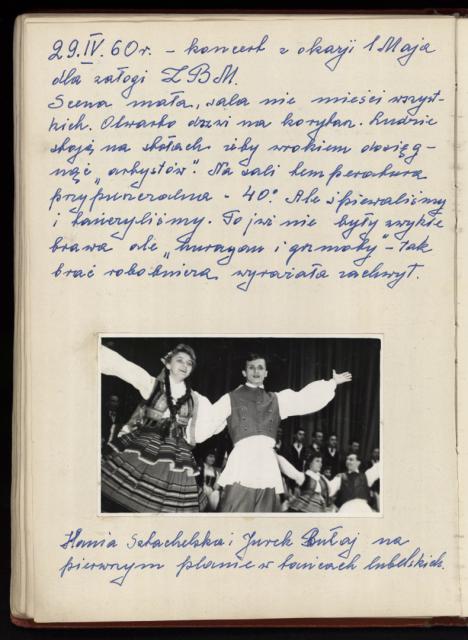 29.IV.60r. – koncert z okazji 1 Maja
dla załogi Z.B.M.
Scena mała, sala nie mieści wszyst-
kich. Otwarto drzwi na korytarz. Ludzie
stoją na stołach żeby wzrokiem dosięg-
nąć „artystów". Na sali temperatura
przypuszczalna – 40°. Ale śpiewaliśmy
i tańczyliśmy. To już nie były zwykłe
brawa ale „huragan i grzmoty" – tak
brać robotnicza wyrażała zachwyt.
Hania Sztachelska i Jurek Bułaj na
pierwszym planie w tańcach lubelskich.